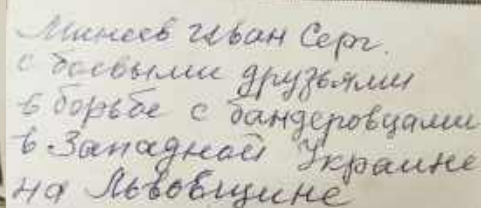 Минеев Иван Серг.
с боевыми друзьями
в борьбе с бандеровцами
в Западной Украине
на Львовщине